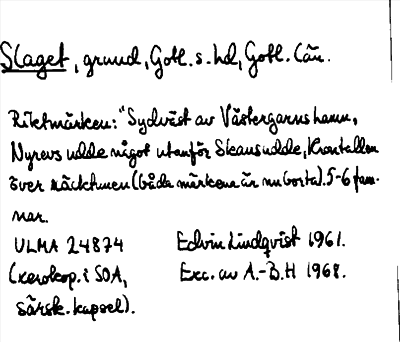 Slaget, grund, Gotl. s. hd, Gotl. län.
Riktmärken: "Sydväst av Västergarns hamn,
Nyrevs udde något utanför Skansudde, Krontallen
över näckhmen (båda märkena är nu borta). 5-6 fam-
nar.
ULMA 24874 Edvin Lindqvist 1961.
(xerokop. i SOA, Exc. av A.-B.H 1968.
särsk. kapsel).